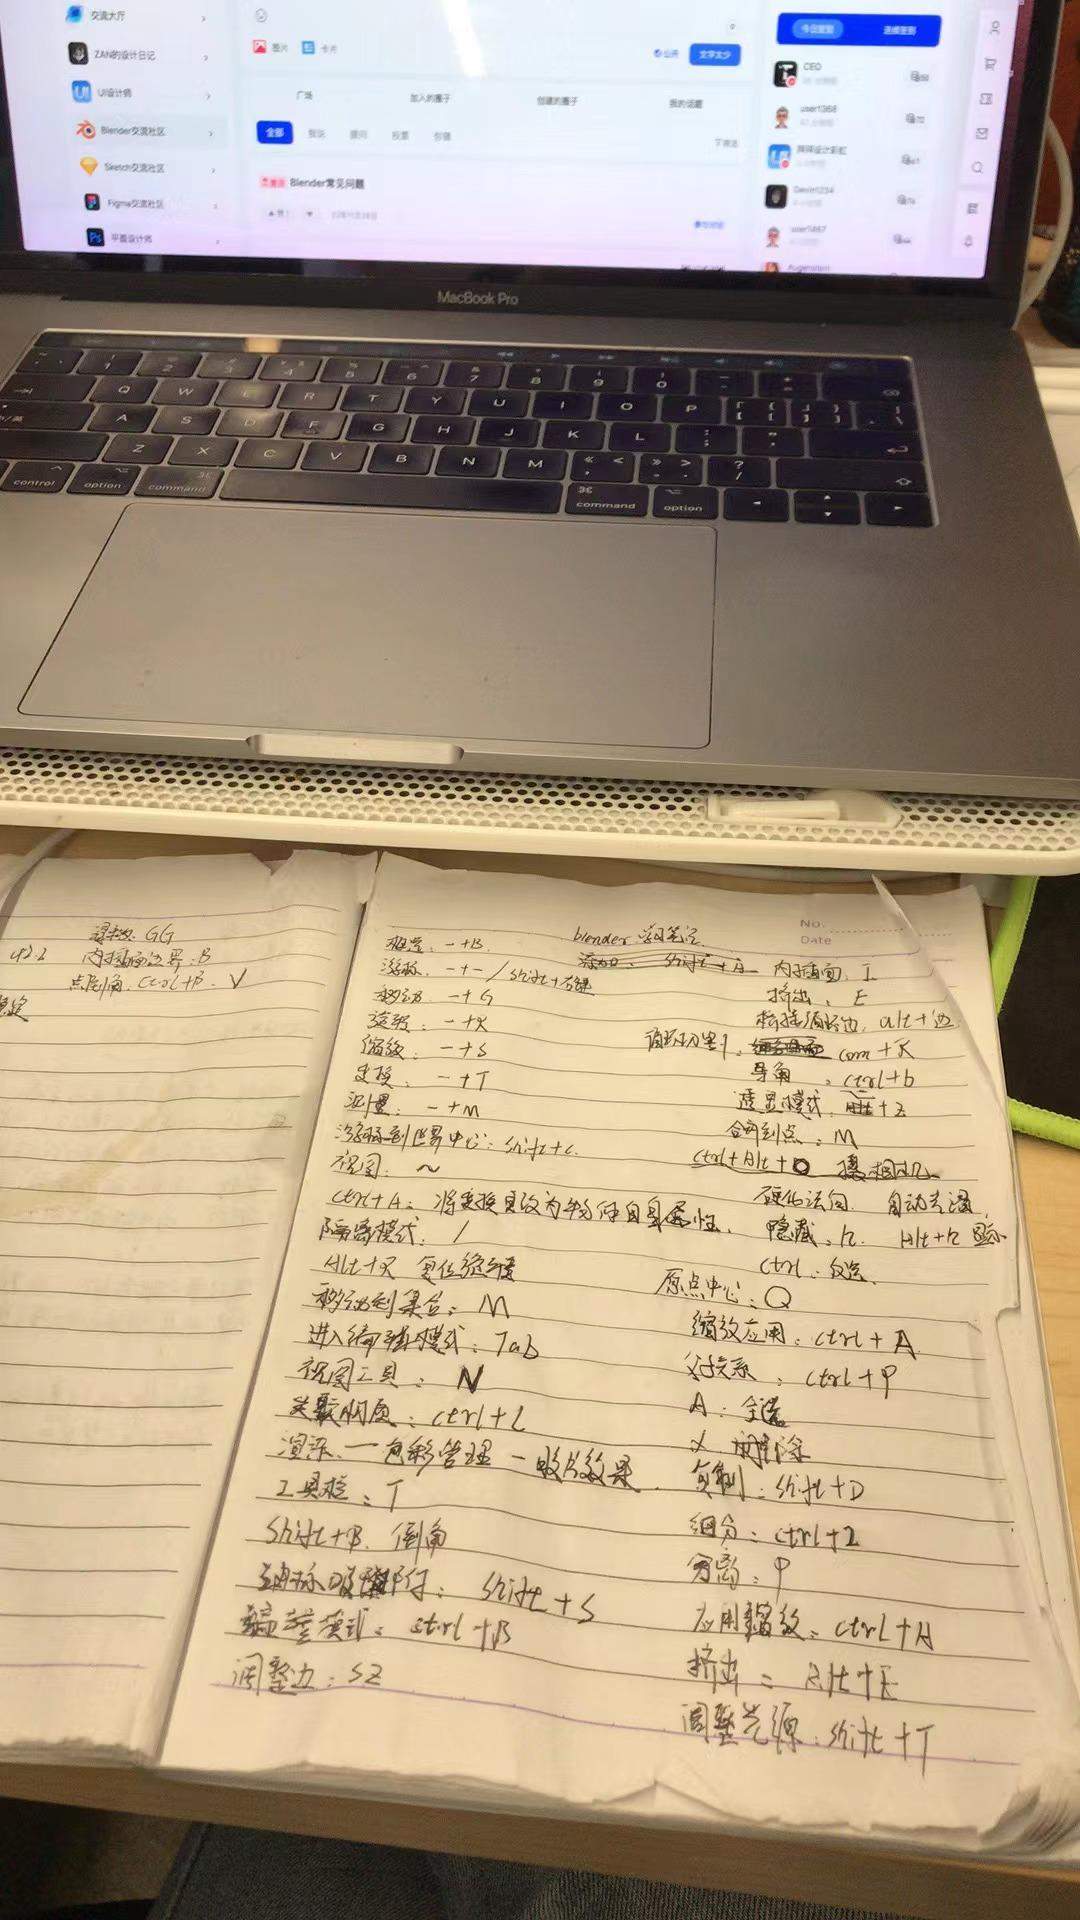 交流大厅
ZAN的设计日记
UI设计师
Blender交流社区
Sketch交流社区
Figma交流社区
平面设计师
图片 卡片
公开 文字太少
广场 加入的圈子 创建的圈子 我的话题
全部 提问 投票
Blender常见问题
今日签到 连续签到
CEO
user1368
Devin1234
user1467
MacBook Pro
1 2 3 4 5 6 7 8 9 0
Q W E R T Y U I O P
A S D F G H J K L
Z X C V B N M
control option command command option
GG
内插面边界:B
点倒角. Ctrl+B. V
No.
Date
blender 学习笔记
框选. -+B.
游标. -+-/shift+右键
移动. -+G
旋转: -+R
缩放: -+S
变换: -+T
测量: -+M
游标到世界中心: shift+C.
视图: ~
ctrl+A: 将变换更改为物体自身属性.
隔离模式: /
Alt+R
移动到集合: M
进入编辑模式: Tab
视图工具: N
关联材质: ctrl+L
渲染—色彩管理—胶片效果.
工具栏: T
Shift+B. 倒角
游标吸附: shift+S
ctrl+B
调整边: SZ
添加. shift+A
内插面. I
挤出. E
循环边. alt+边
循环切割: com+R
导角. ctrl+b
透显模式. Alt+Z
合并到点: M
ctrl+Alt+0 摄相机
硬化法向. 自动光滑.
隐藏. h. Alt+h 显示
ctrl: 反选.
原点中心: Q
缩放应用: ctrl+A
父子关系: ctrl+P
A: 全选
X. 删除
复制: shift+D
细分: ctrl+2
分离: P
应用缩放: ctrl+A
挤出: Alt+E
调整光源: shift+T